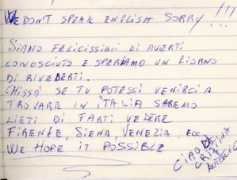 WE DON'T SPEAK ENGLISH SORRY...!!!
SIAMO FELICISSIMI DI AVERTI
CONOSCIUTO E SPERIAMO UN GIORNO
DI RIVEDERTI.
CHISSÀ SE TU POTESSI VENIRCI A
TROVARE IN ITALIA SAREMO
LIETI DI FARTI VEDERE
FIRENZE, SIENA, VENEZIA, ECC
WE HOPE IT POSSIBLE
CIAO DA
CRISTINA